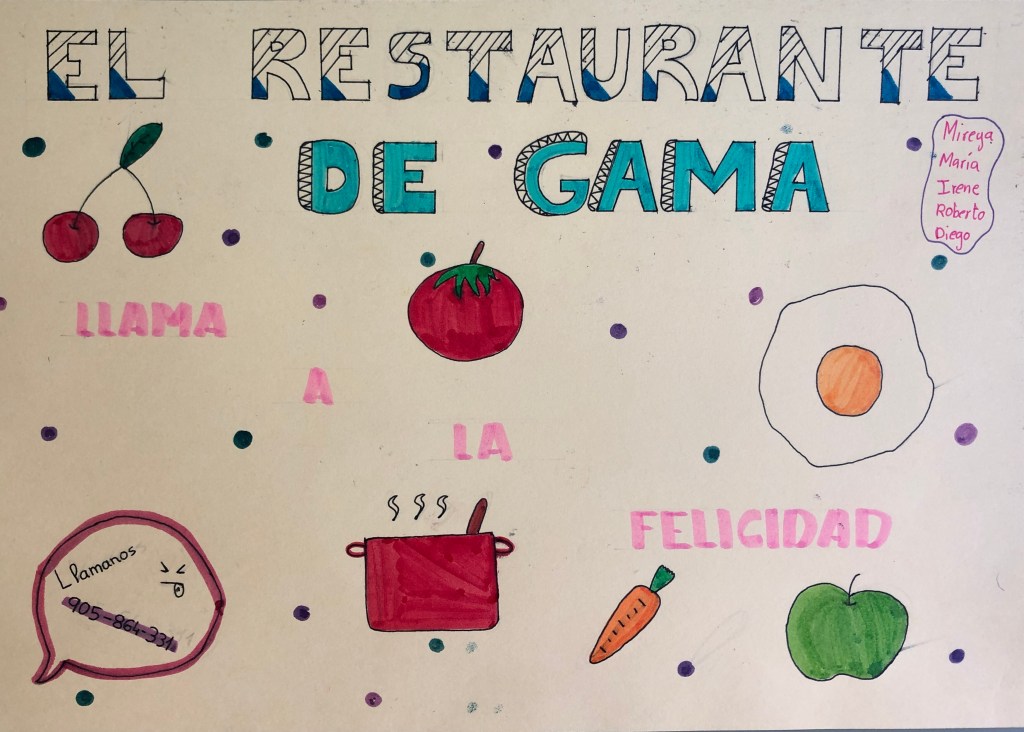 EL RESTAURANTE
DE GAMA
Mireya
María
Irene
Roberto
Diego
LLAMA
A
LA
FELICIDAD
Llamanos
905-864-331